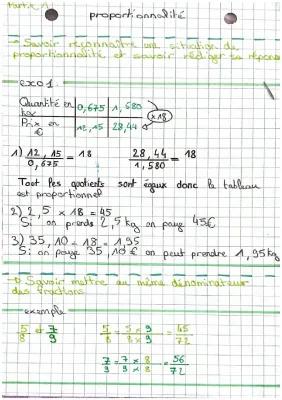 Partie A
proportionnalité
Savoir reconnaître une situation de
proportionnalité et savoir rédiger sa réponse
exo 1
Quantité en 0,675 1,580
Prix en € 12,15 28,44 ×18
1) 12,15/0,675 = 18 28,44/1,580 = 18
Tout les quotients sont égaux donc le tableau
est proportionnel
2) 2,5 × 18 = 45
Si on prends 2,5 kg on paye 45€
3) 35,10 ÷ 18 = 1,95
Si on paye 35,10€ on peut prendre 1,95kg
Savoir mettre au même dénominateur
des fractions
exemple
5/8 et 7/9 5/8 = 5×9/8×9 = 45/72
7/9 = 7×8/9×8 = 56/72